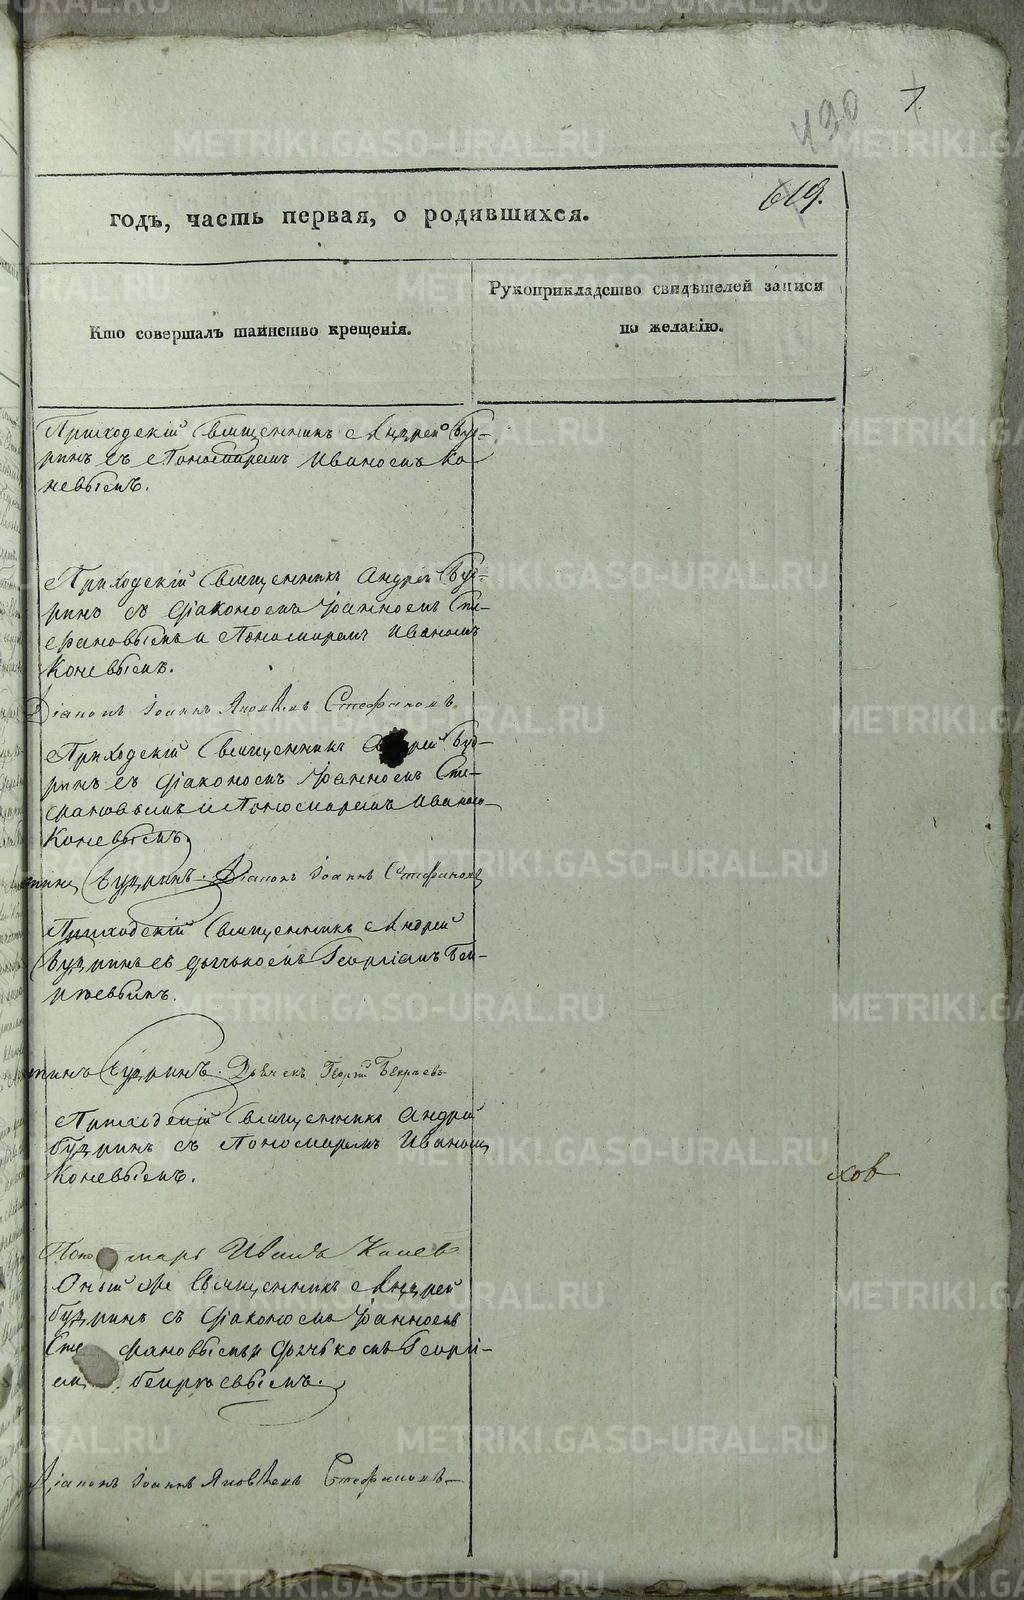 7.
490
619.
годъ, часть первая, о родившихся.
Кто совершалъ таинство крещенія.
Рукоприкладство свидѣтелей записи
по желанію.
Приходскій Священникъ Андрей Буд-
ринъ съ Пономаремъ Иваномъ Ко
невымъ.
Приходскій Священникъ Андрей Буд-
ринъ съ Діакономъ Іоанномъ Сте-
фановымъ и Пономаремъ Иваномъ
Коневымъ.
Діаконъ Іоаннъ Яковлевъ Стефановъ
Приходскій Священникъ Андрей Буд-
ринъ съ Діакономъ Іоанномъ Сте-
фановымъ и Пономаремъ Иваномъ
Коневымъ.
Будринъ. Діаконъ Іоаннъ Стефановъ
Приходскій Священникъ Андрей
Будринъ съ дьячкомъ Георгіемъ Бек-
ряевымъ.
Будринъ. Дьячекъ Георгій
Приходскій Священникъ Андрей
Будринъ съ Пономаремъ Иваномъ
Коневымъ.
хов
Пономарь Иванъ Конев
Оный же Священникъ Андрей
Будринъ съ Діакономъ Іоанномъ
Стефановымъ и дьячкомъ Георгі-
емъ
Діаконъ Іоаннъ Яковлевъ Стефановъ
METRIKI.GASO-URAL.RU